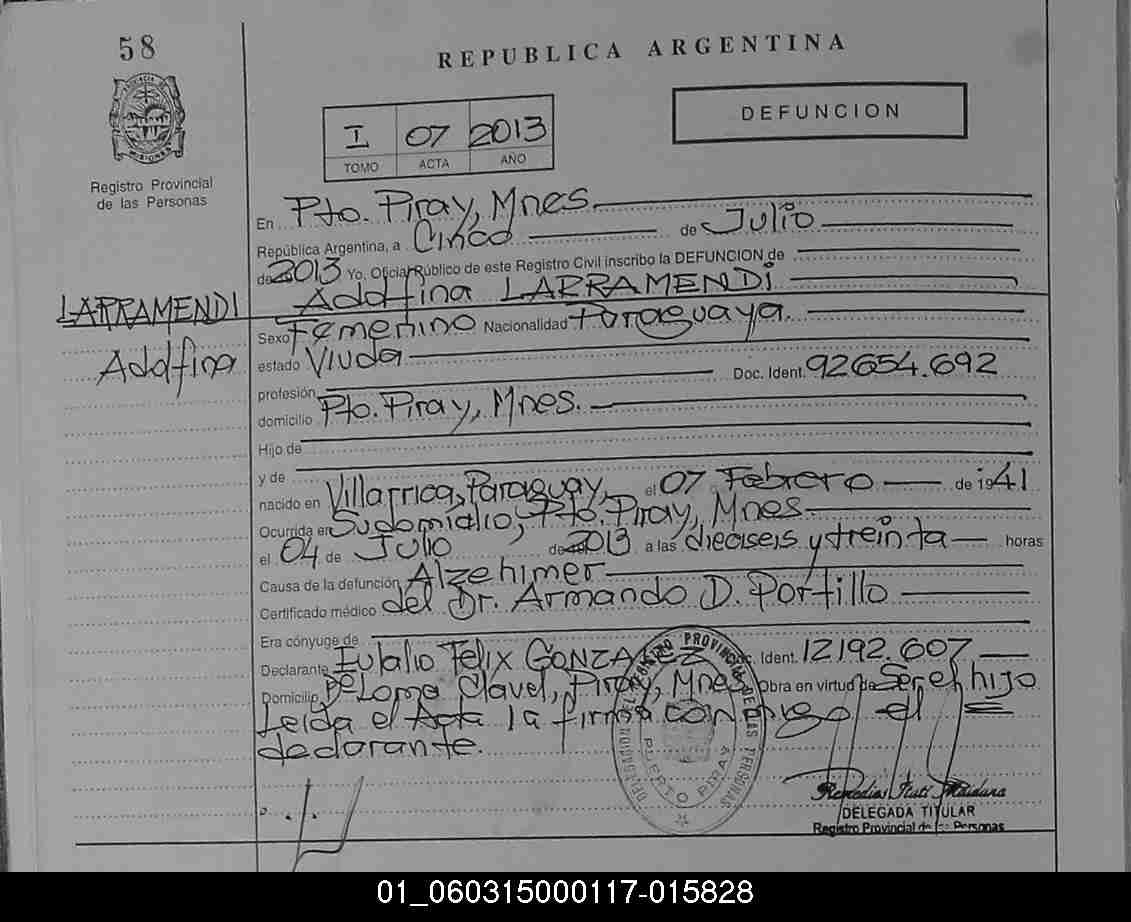 58
REPUBLICA ARGENTINA
PROVINCIA DE MISIONES
Registro Provincial
de las Personas
I 07 2013
TOMO ACTA AÑO
DEFUNCION
En Pto. Piray, Mnes.
República Argentina, a Cinco de Julio
de 2013 Yo, Oficial Público de este Registro Civil inscribo la DEFUNCION de
Adolfina LARRAMENDI
LARRAMENDI
Adolfina
Sexo Femenino Nacionalidad Paraguaya.
estado Viuda
profesión Doc. Ident. 92654.692
domicilio Pto. Piray, Mnes.
Hijo de
y de
nacido en Villarrica, Paraguay, el 07 Febrero de 1941
Ocurrida en Sudomicilio, Pto. Piray, Mnes
el 04 de Julio de 2013 a las dieciseis y treinta horas
Causa de la defunción Alzehimer
Certificado médico del Dr. Armando D. Portillo
Era cónyuge de
Declarante Eulalio Felix GONZALEZ Doc. Ident. 12192.607
Domicilio Bº Loma Clavel, Piray, Mnes Obra en virtud de Ser el hijo
Leida el Acta la firma conmigo el
declarante.
REGISTRO PROVINCIAL DE LAS PERSONAS
PUERTO PIRAY
DELEGADA TITULAR
Registro Provincial de las Personas
01_060315000117-015828